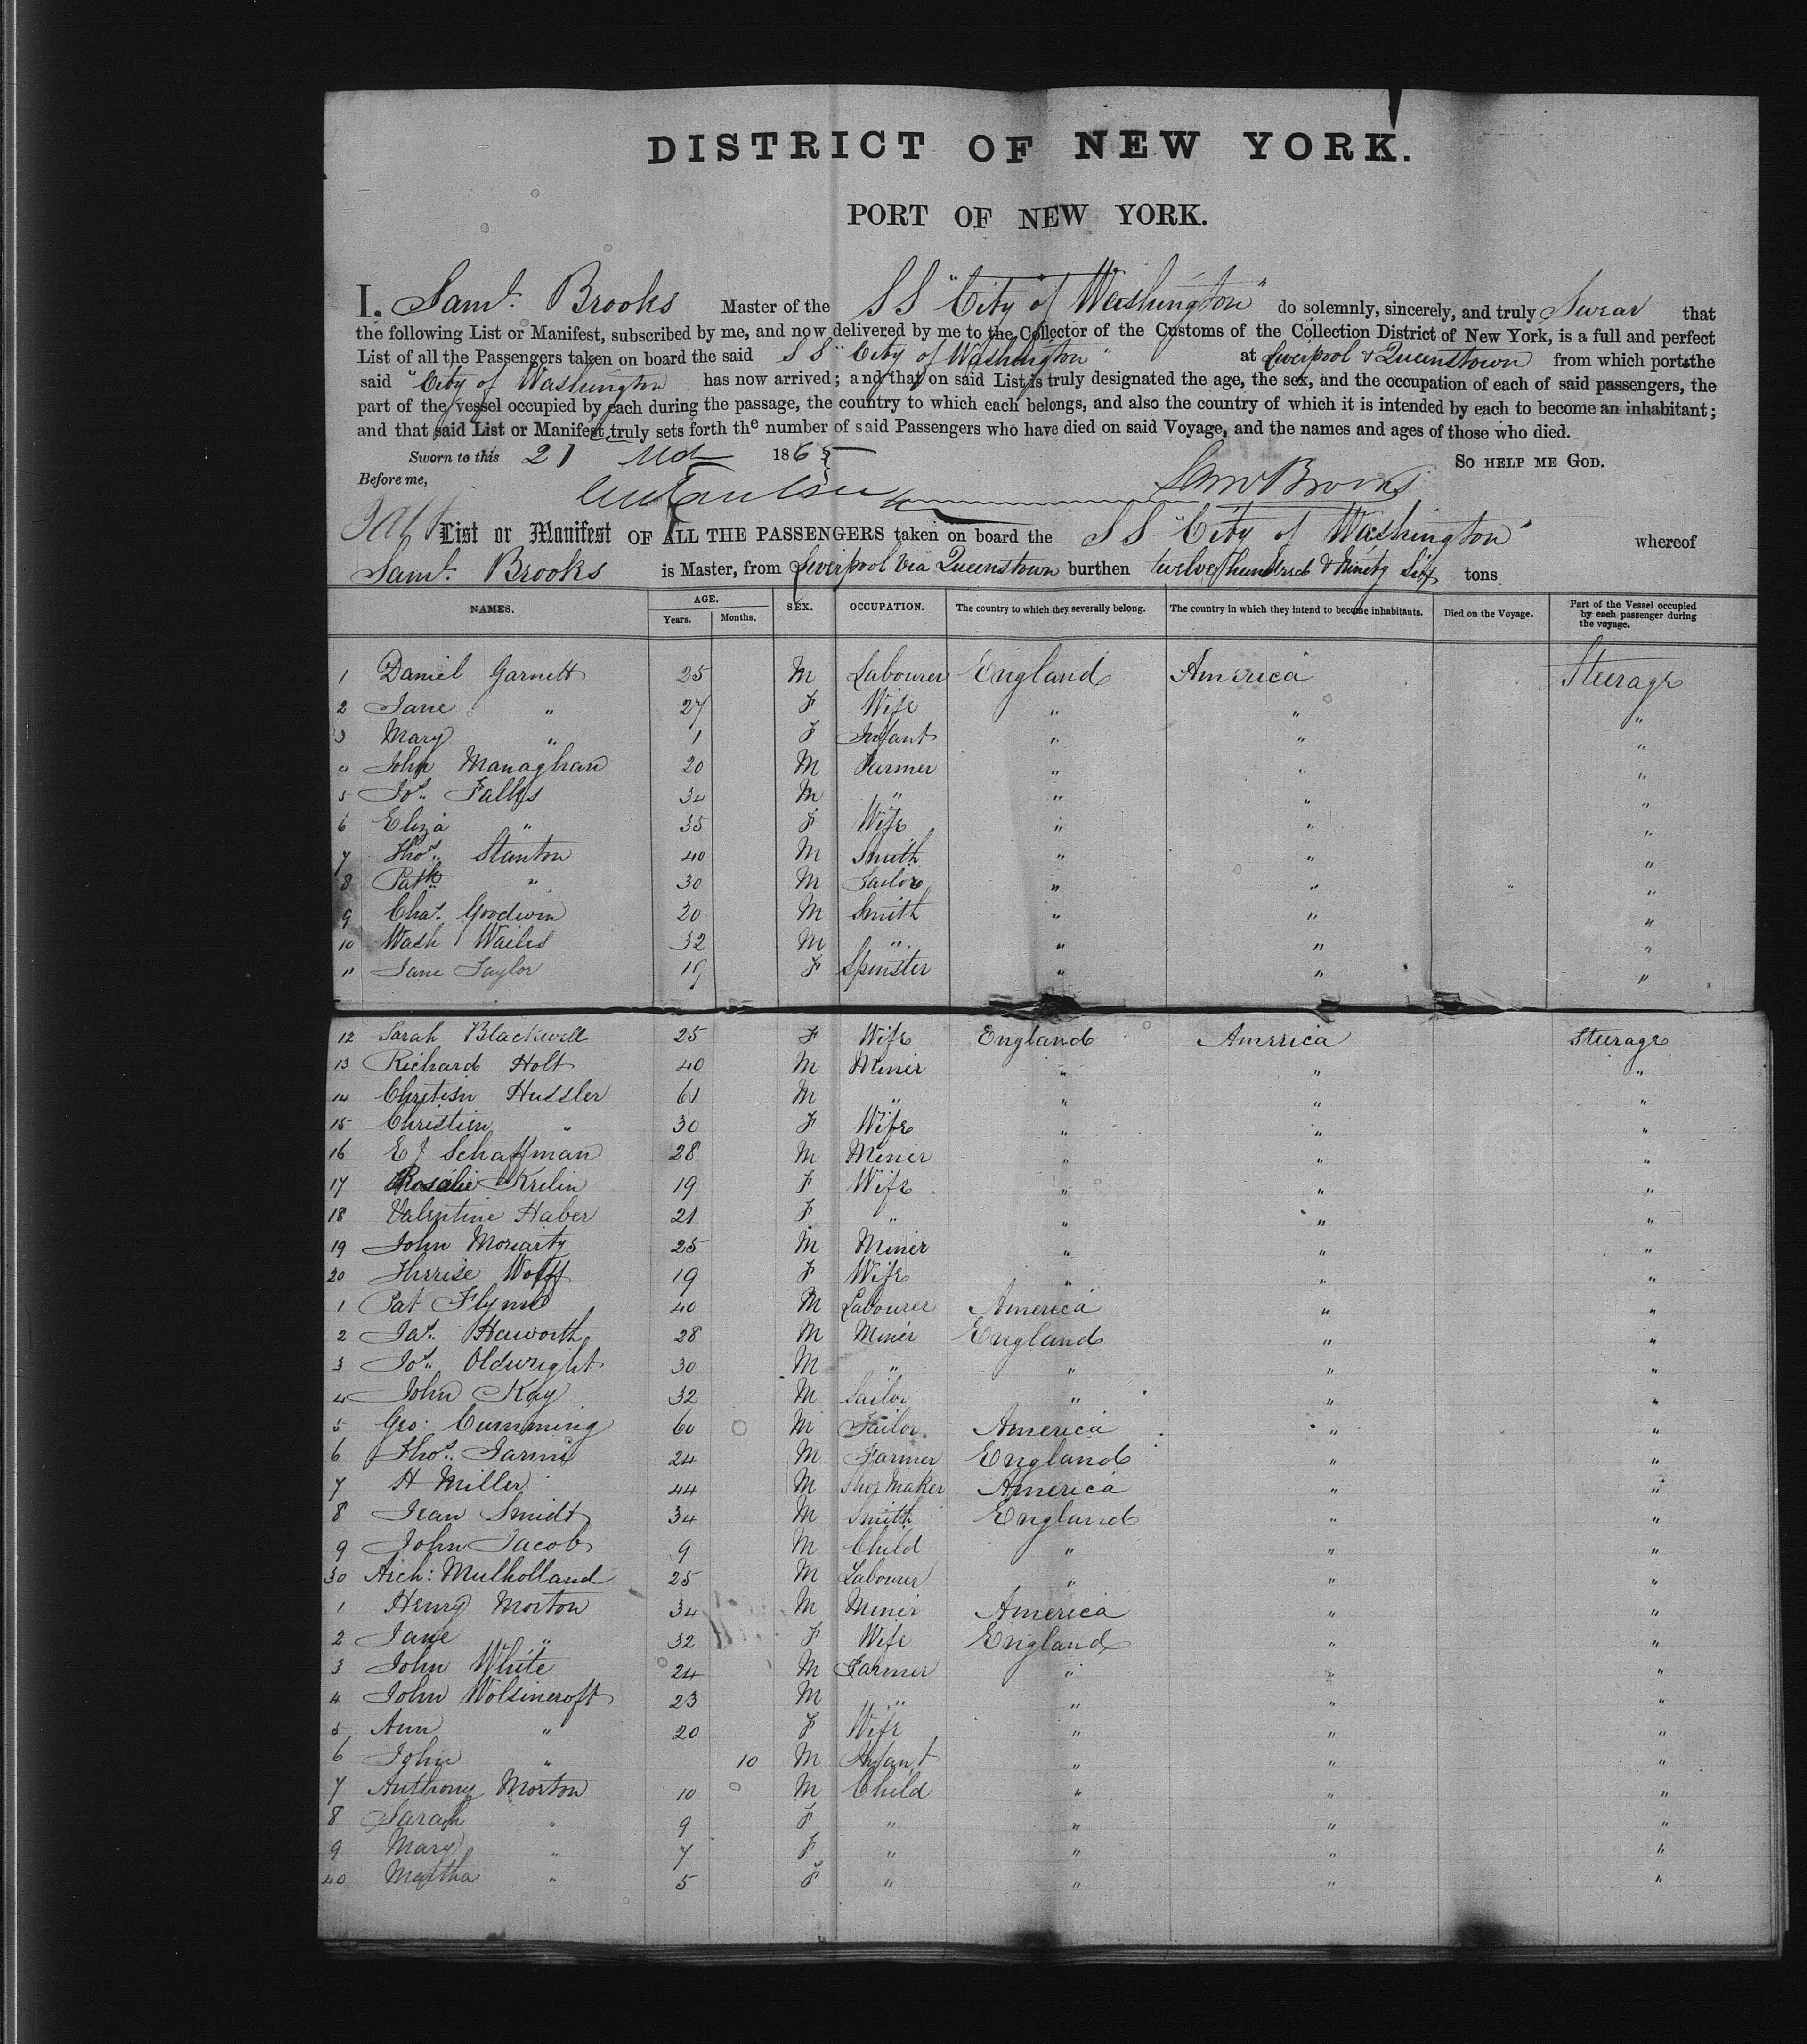 DISTRICT OF NEW YORK.
PORT OF NEW YORK.
I, Saml. Brooks Master of the SS "City of Washington" do solemnly, sincerely, and truly Swear that
the following List or Manifest, subscribed by me, and now delivered by me to the Collector of the Customs of the Collection District of New York, is a full and perfect
List of all the Passengers taken on board the said SS "City of Washington" at Liverpool & Queenstown from which ports the
said "City of Washington has now arrived; and that on said List is truly designated the age, the sex, and the occupation of each of said passengers, the
part of the vessel occupied by each during the passage, the country to which each belongs, and also the country of which it is intended by each to become an inhabitant;
and that said List or Manifest truly sets forth the number of said Passengers who have died on said Voyage, and the names and ages of those who died.
Sworn to this 21 1865 SO HELP ME GOD.
Before me, Saml Brooks
List or Manifest OF ALL THE PASSENGERS taken on board the SS "City of Washington" whereof
Saml. Brooks is Master, from Liverpool via Queenstown burthen twelve hundred & Ninety Six tons
NAMES. AGE. Years. Months. SEX. OCCUPATION. The country to which they severally belong. The country in which they intend to become inhabitants. Died on the Voyage. Part of the Vessel occupied by each passenger during the voyage.
1 Daniel Garnett 25 M Labourer England America Steerage
2 Jane " 27 F Wife " " "
3 Mary " 1 F Infant " " "
4 John Managhan 20 M Farmer " " "
5 Jos. Falks 34 M " " " "
6 Eliza " 35 F Wife " " "
7 Thos. Stanton 40 M Smith " " "
8 Patk " 30 M Tailor " " " "
9 Chas. Goodwin 20 M Smith " " "
10 Wash Wailes 32 M " " " "
11 Jane Taylor 19 F Spinster " " "
12 Sarah Blackwell 25 F Wife England America Steerage
13 Richard Holt 40 M Miner " " "
14 Chritisn Hussler 61 M " " " "
15 Christien " 30 F Wife " " "
16 E J Schaffman 28 M Miner " " "
17 Rosalie Krelin 19 F Wife " " "
18 Valentine Haber 21 F " " " "
19 John Moriarty 25 M Miner " " "
20 Therise Wolff 19 F Wife " " "
1 Pat Flynn 40 M Labourer America " "
2 Jas. Haworth 28 M Miner England " "
3 Jos. Oldwright 30 M " " " "
4 John Kay 32 M Sailor " " "
5 Geo: Cumming 60 M Tailor America " "
6 Thos. Jarmi 24 M Farmer England " "
7 H Miller 44 M Shoe Maker America " "
8 Jean Smidt 34 M Smith England " "
9 John Jacob 9 M Child " " "
30 Arch: Mulholland 25 M Labourer " " "
1 Henry Morton 34 M Miner America " "
2 Jane " 32 F Wife England " "
3 John White 24 M Farmer " " "
4 John Wolsincroft 23 M " " " "
5 Ann " 20 F Wife " " "
6 John " 10 M Infant " " "
7 Anthony Morton 10 M Child " " "
8 Sarah " 9 F " " " "
9 Mary " 7 F " " " "
40 Martha " 5 F " " " "